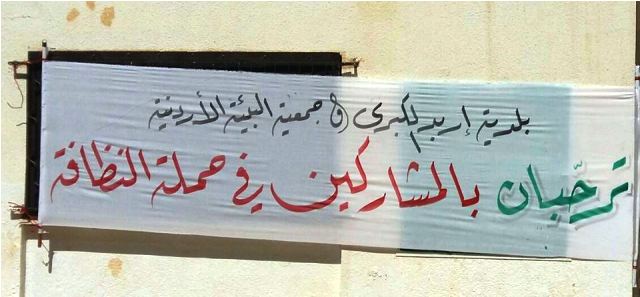 بلدية إربد الكبرى و جمعية البيئة الأردنية
ترحّبان بالمشاركين في حملة النظافة